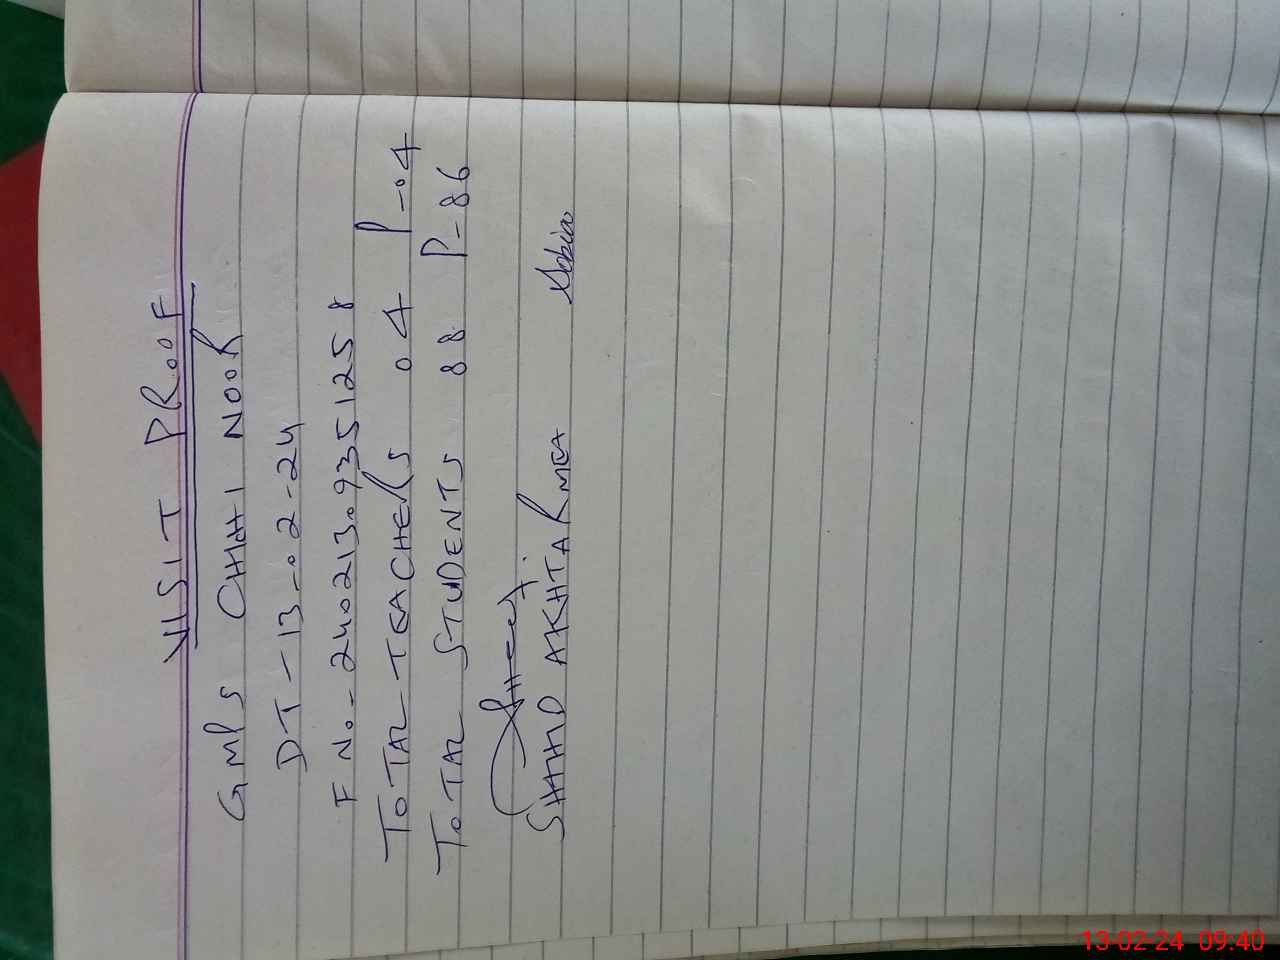 VISIT PROOF
GMPS CHAHI NOOR
DT-13-02-24
F No-24021309351258
TOTAL TEACHERS 04 P-04
TOTAL STUDENTS 88 P-86
SHAHID AKHTAR MEA
13-02-24 09:40